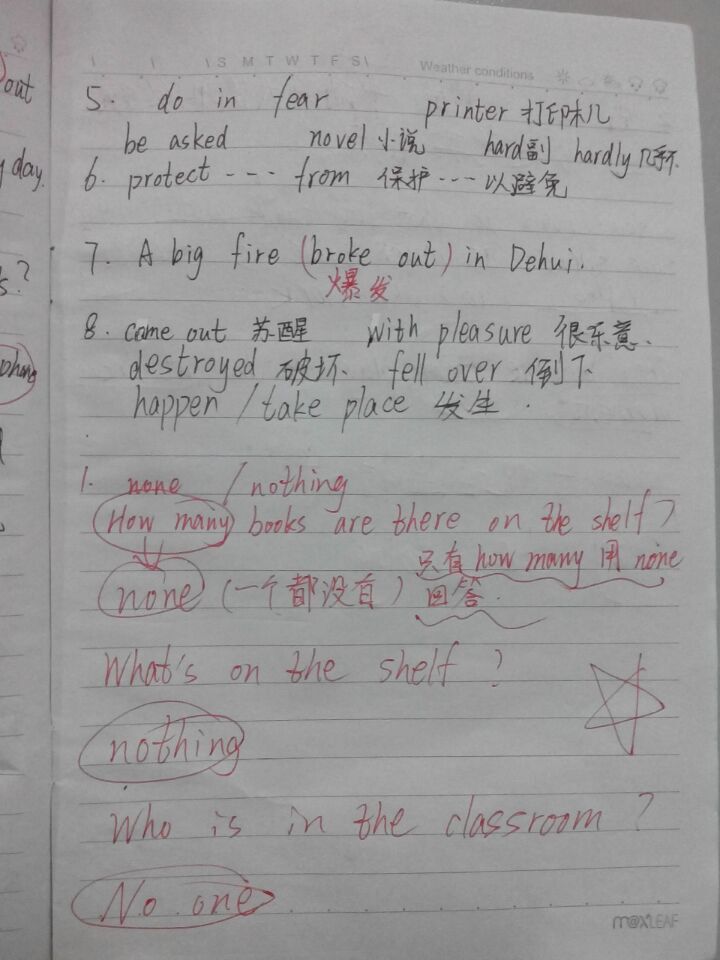 S M T W T F S
Weather conditions
out
day.
s?
5. do in fear printer 打印机
be asked novel 小说 hard副 hardly 几乎不
6. protect --- from 保护---以避免
7. A big fire (broke out) in Dehui.
爆发
8. came out 苏醒 with pleasure 很乐意.
destroyed 破坏. fell over 倒下
happen / take place 发生.
1. none / nothing
How many books are there on the shelf?
只有 how many 用 none
none (一个都没有) 回答.
What's on the shelf?
nothing
Who is in the classroom?
No one
m@XLEAF